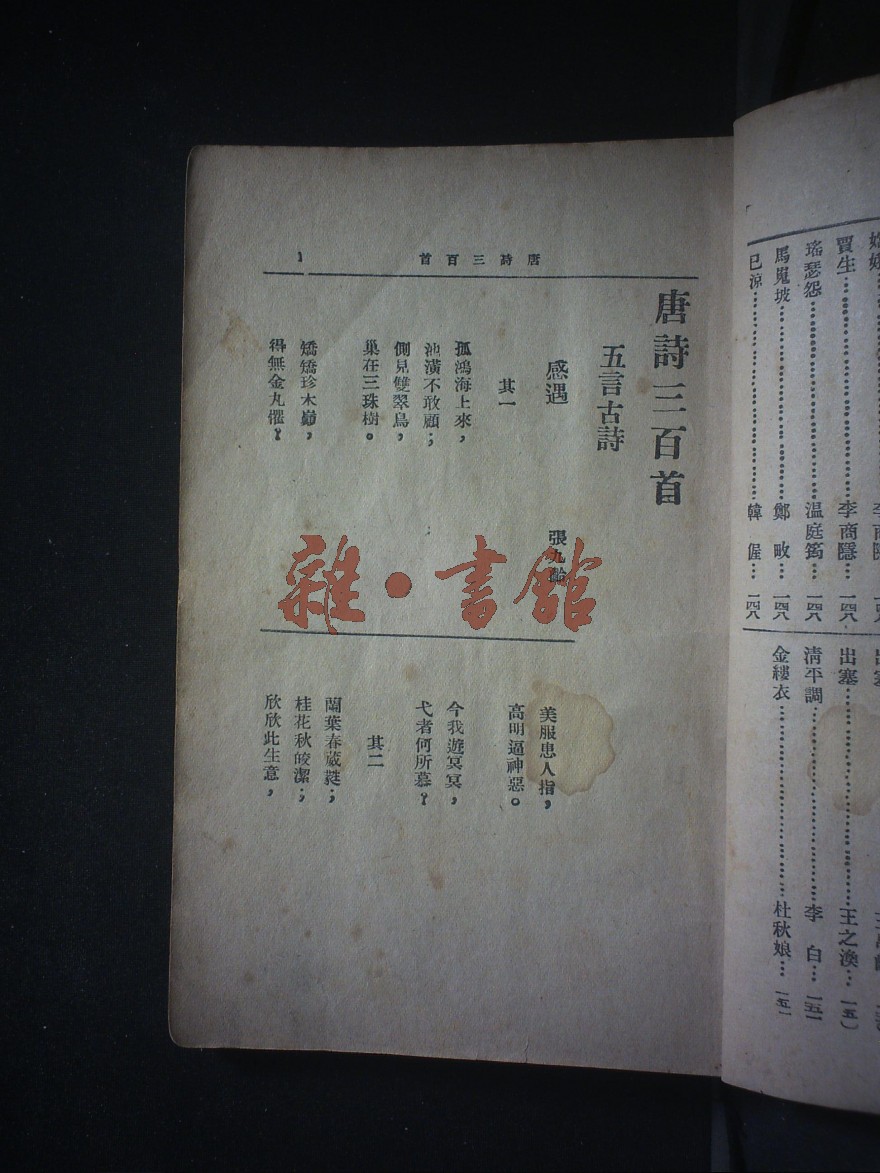 唐詩三百首
1
唐詩三百首
五言古詩
感遇 張九齡
其一
孤鴻海上來，
池潢不敢顧；
側見雙翠鳥，
巢在三珠樹。
矯矯珍木巔，
得無金丸懼？
美服患人指，
高明逼神惡。
今我遊冥冥，
弋者何所慕？
其二
蘭葉春葳蕤；
桂花秋皎潔；
欣欣此生意，
雜·書館
賈生 李商隱 一四八
瑤瑟怨 温庭筠 一四八
馬嵬坡 鄭畋 一四八
已涼 韓偓 一四八
出塞
出塞 王之渙 一五〇
清平調 李白 一五一
金縷衣 杜秋娘 一五一